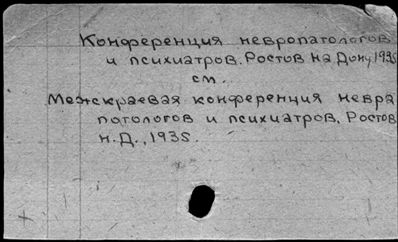 Конференция невропатологов
и психиатров. Ростов на Дону, 1935
см.
Межскраевая конференция невра
патологов и психиатров, Ростов
н.Д., 1935.